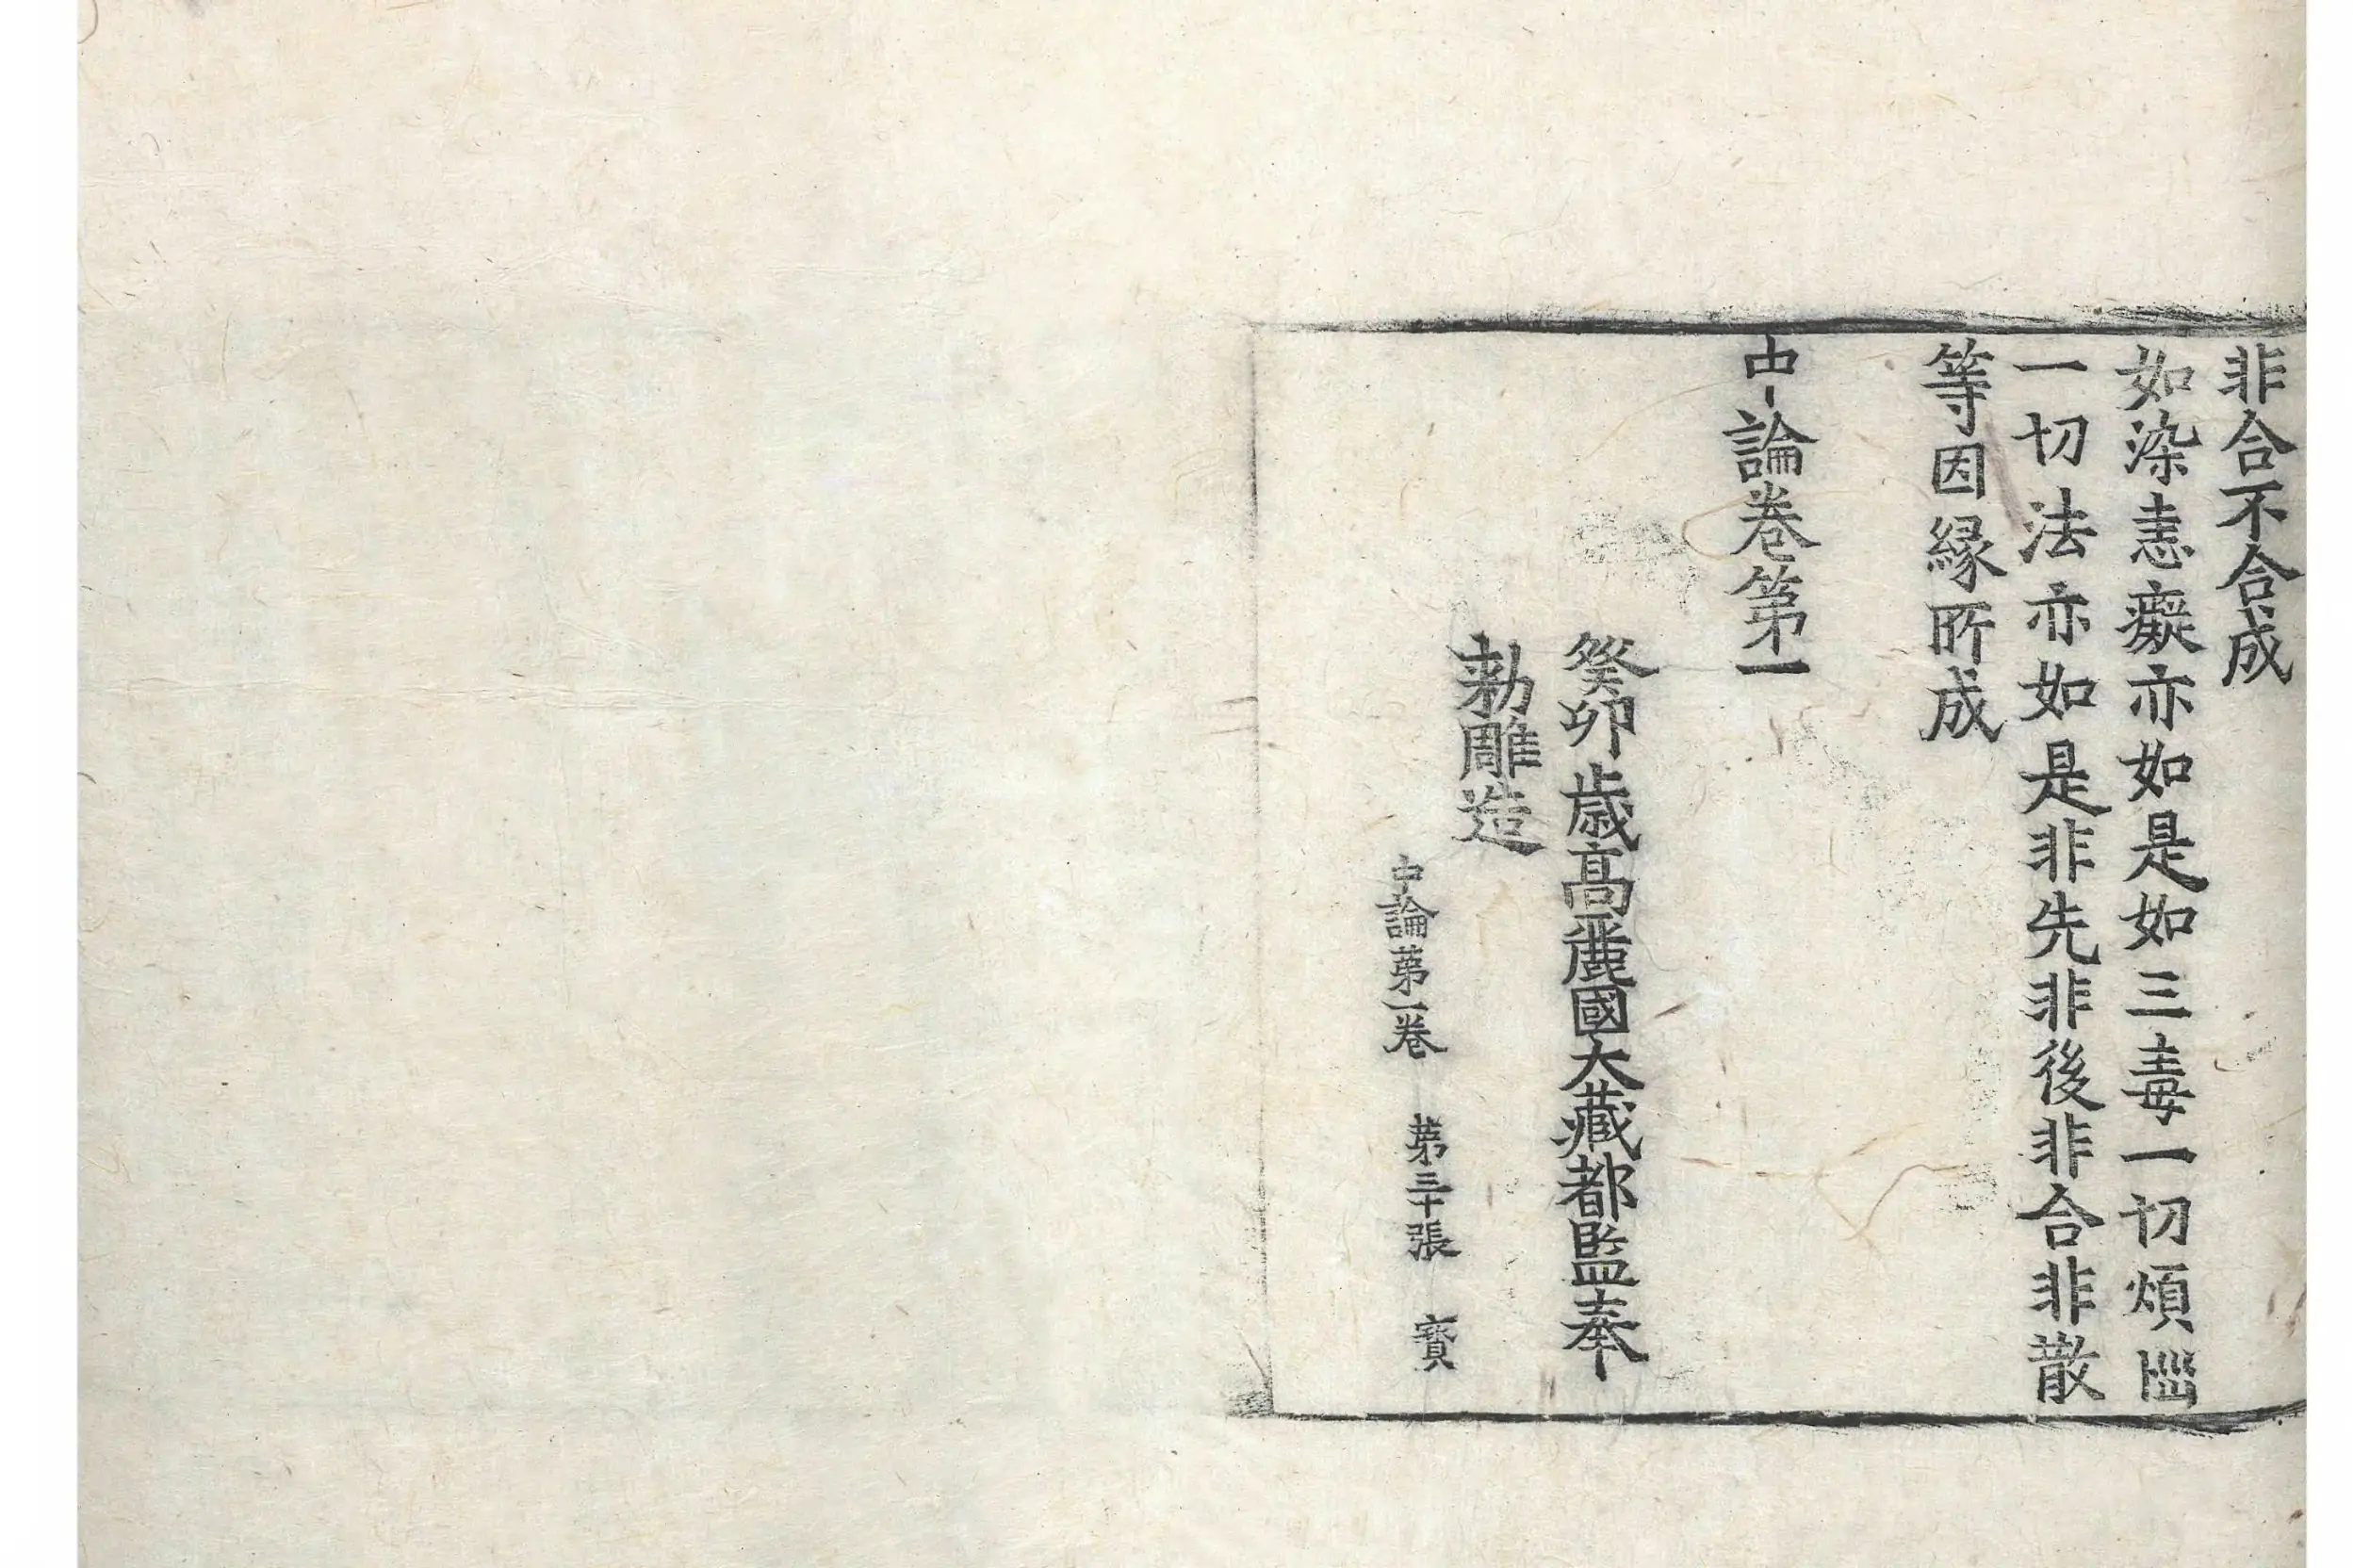 非合不合成
如染恚癡亦如是如三毒一切煩惱
一切法亦如是非先非後非合非散
等因緣所成
中論卷第一
癸卯歲高麗國大藏都監奉
勅雕造
中論第一卷 第三十張 寶